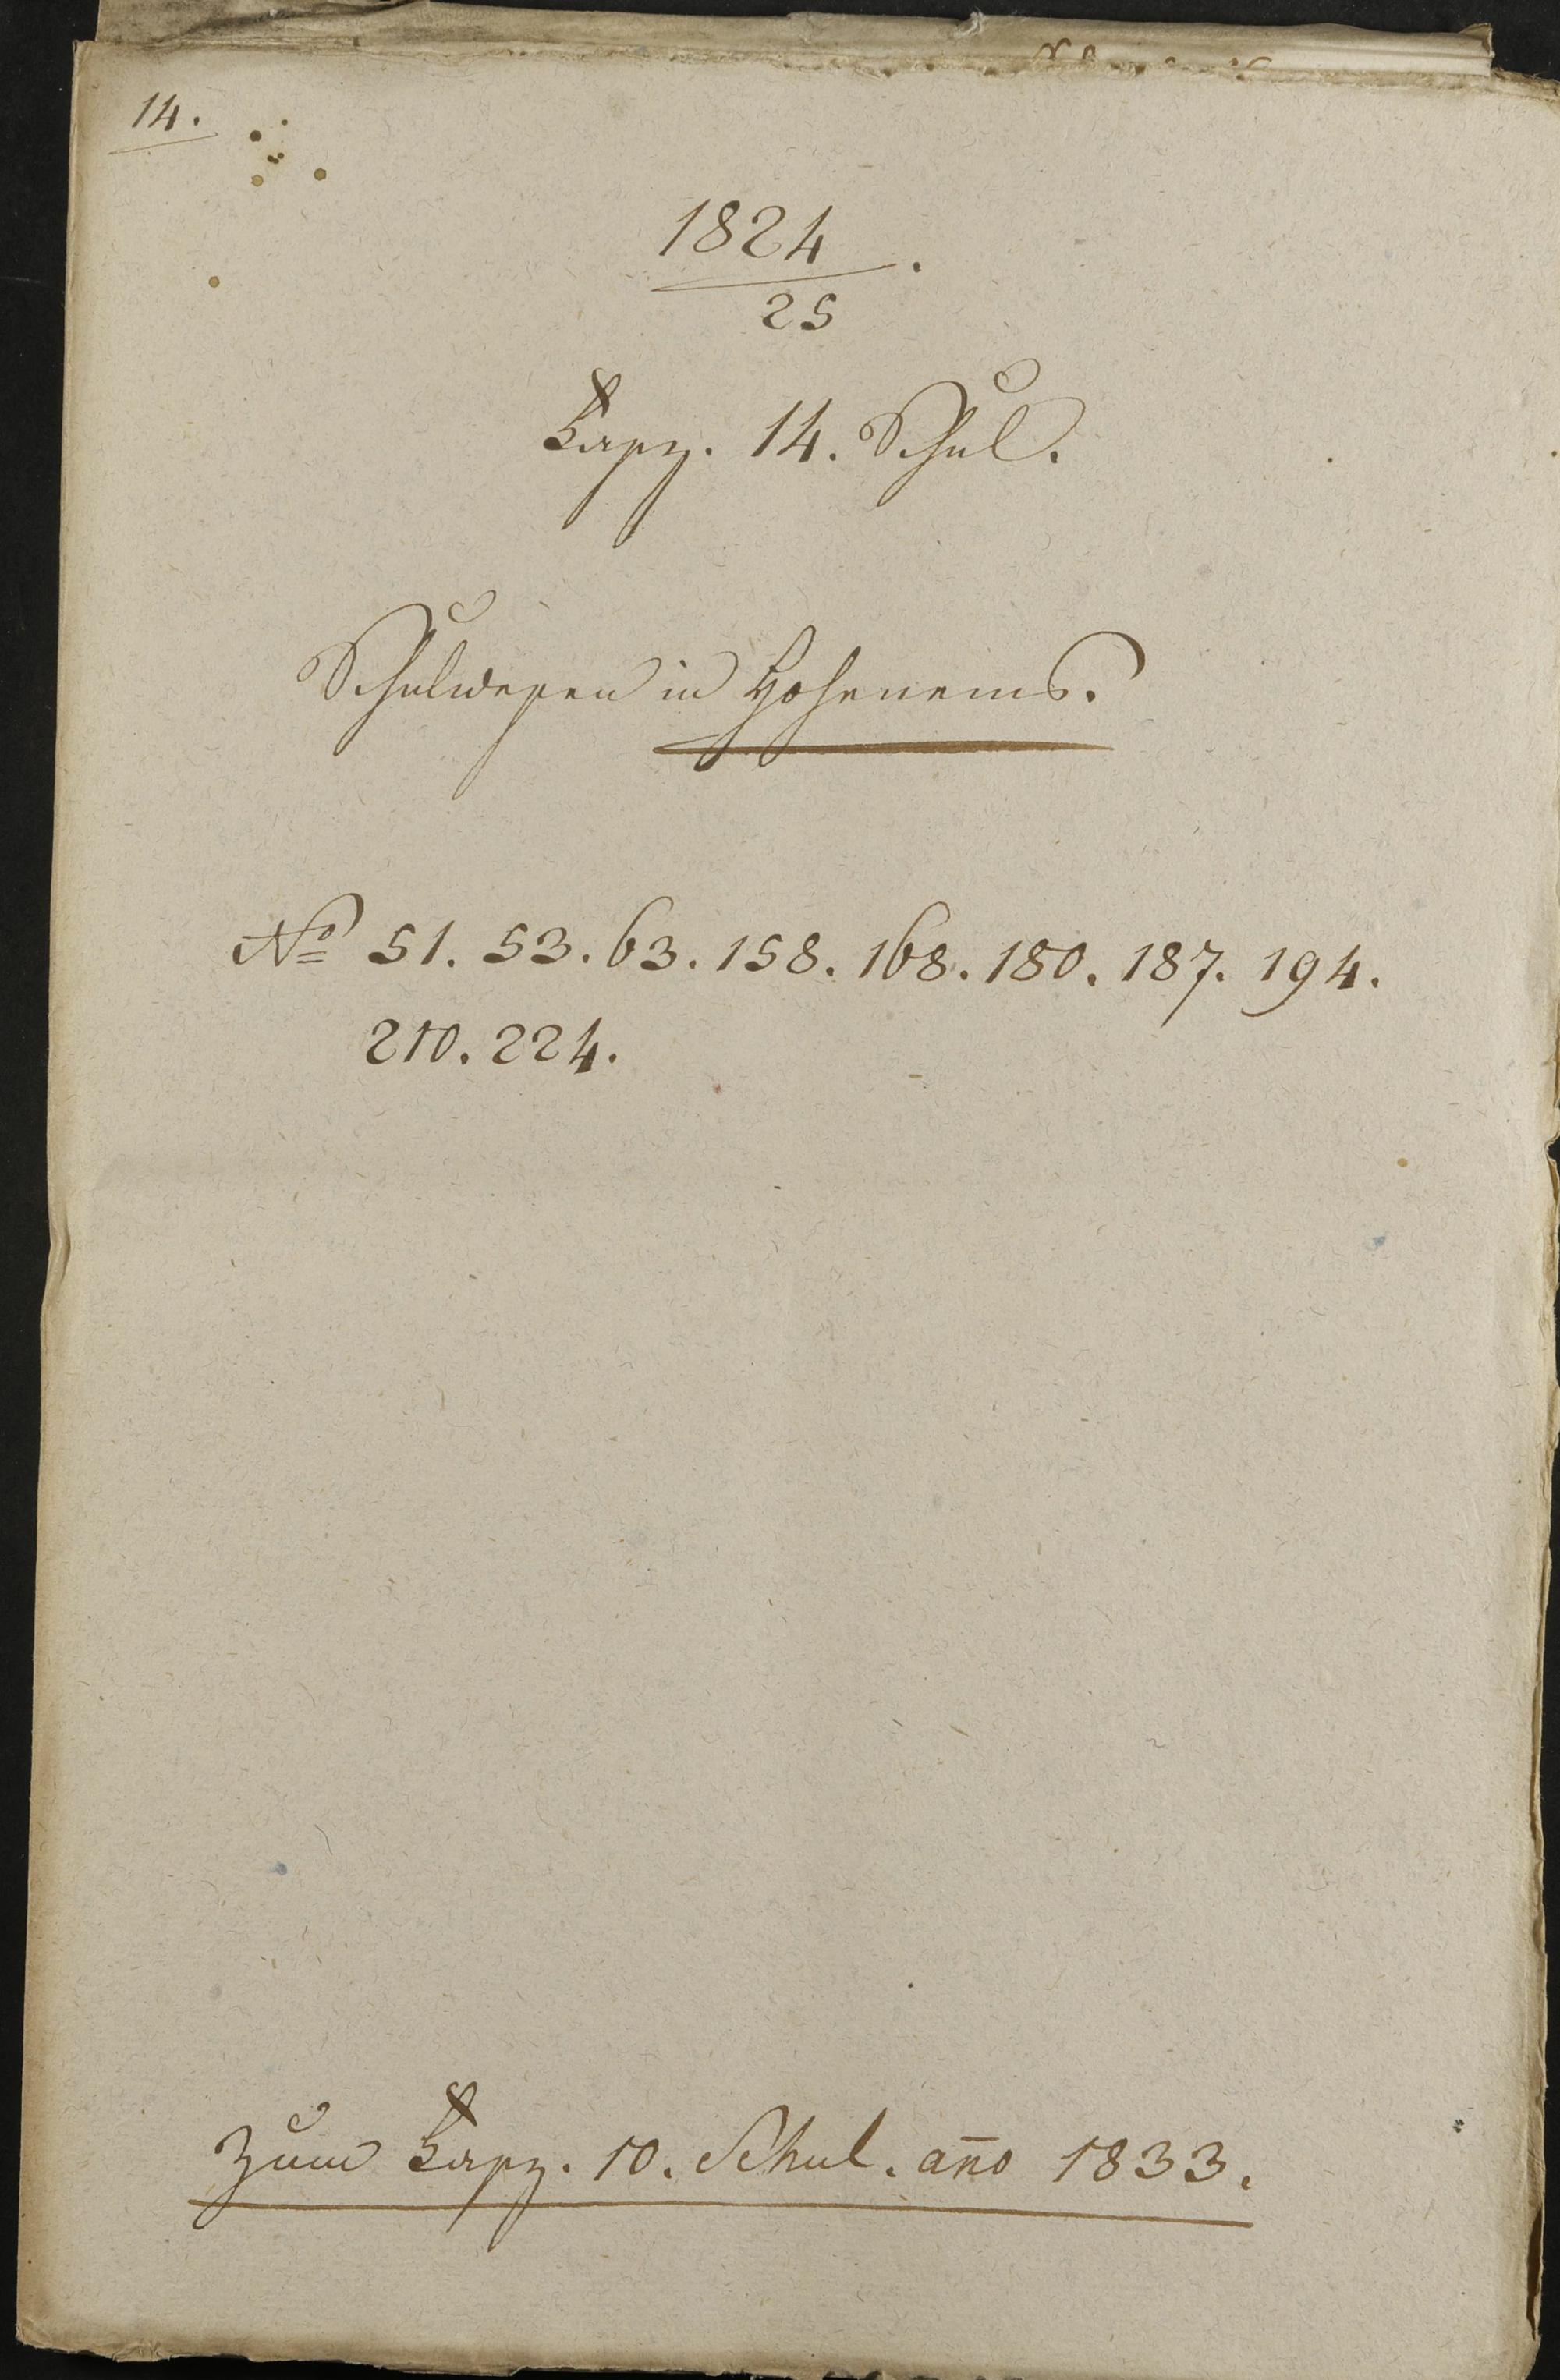 14.
1824.
25
Fasz. 14. Schul.
Schulwesen in Hohenems.
No 51. 53. 63. 158. 168. 180. 187. 194.
210. 224.
Zum Fasz. 10. Schul. año 1833.